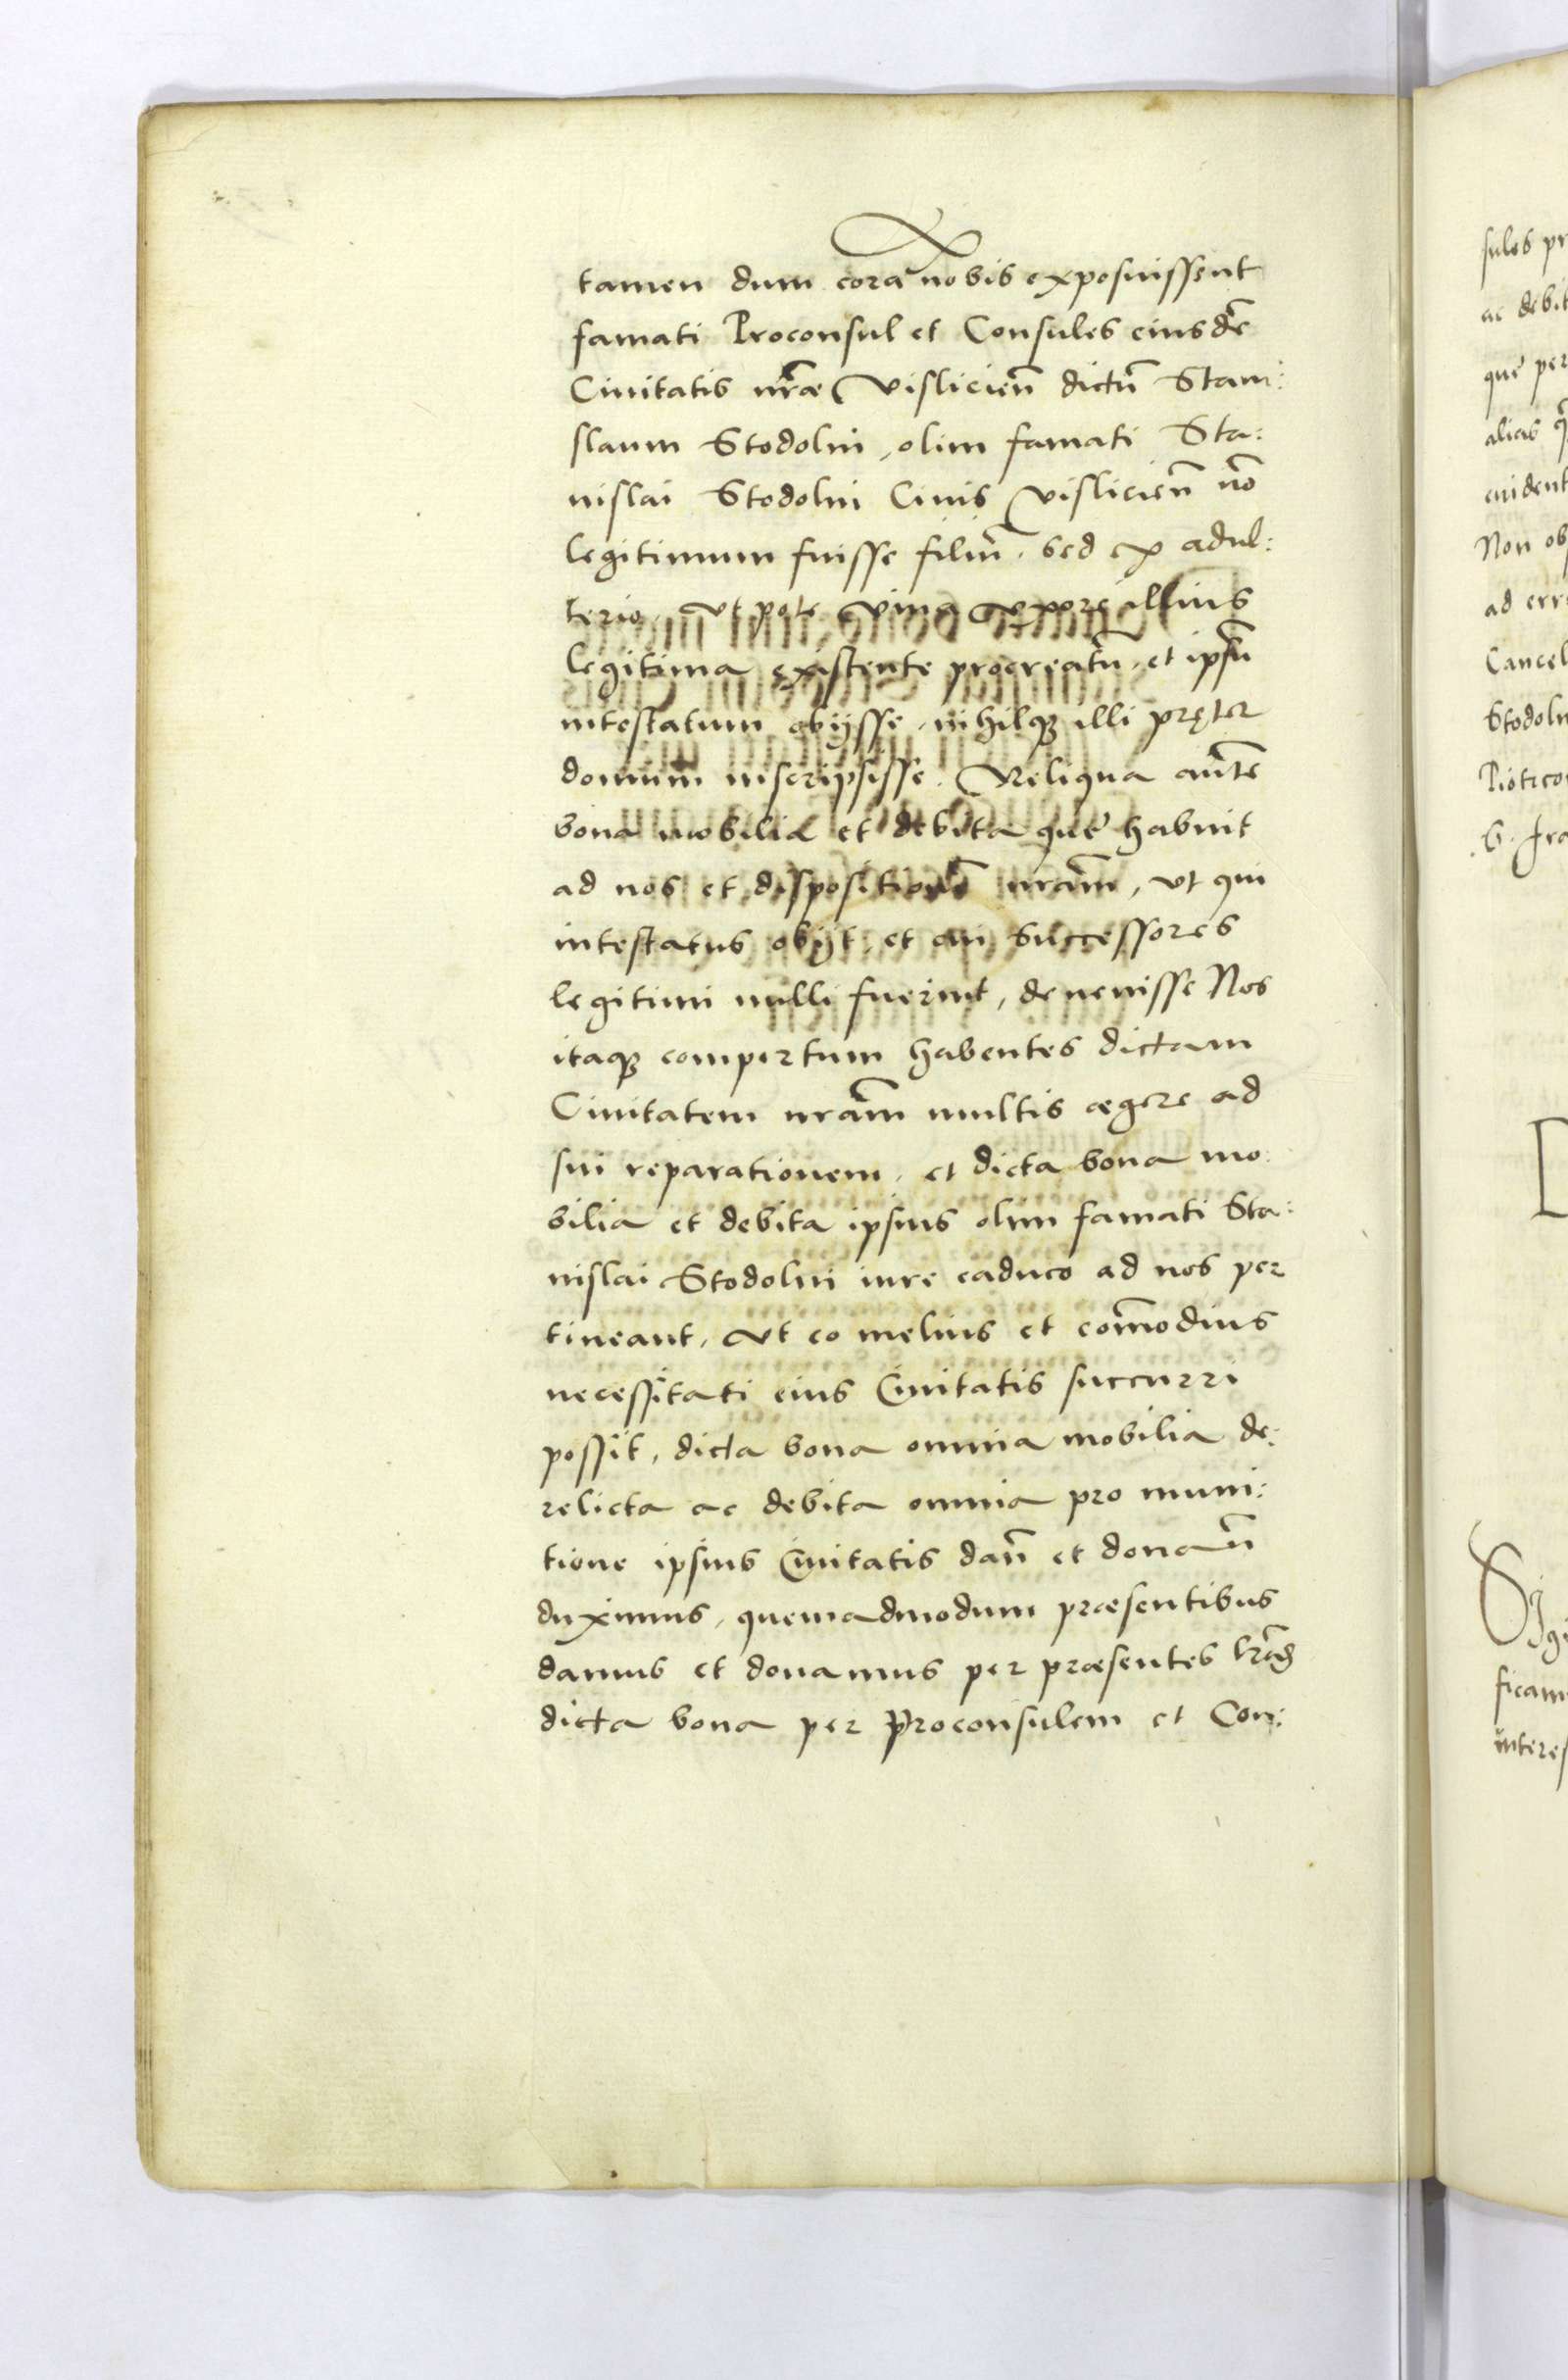 tamen dum corā nobis exposuissent
famati Proconsul et Consules eiusdē
Ciuitatis nr̄ae Vislicień dictū Stani:
slaum Stodolni, olim famati Sta:
nislai Stodolni Ciuis Vislicień nō
legitimum fuisse filiū, sed ex adul:
terio, vt pote viua uxore illius
legitima existente procreatū, et ipsū
intestatum obijsse, nihilq3 illi pręter
domum inscripsisse. Reliqua autē
bona mobilia et debita quę habuit
ad nos et dispositionē nrām, vt qui
intestatus obijt, et cui successores
legitimi nulli fuerint, deuenisse Nos
itaq3 compertum habentes dictam
Ciuitatem nrām multis aegere ad
sui reparationem, et dicta bona mo:
bilia et debita ipsius olim famati Sta:
nislai Stodolni iure caduco ad nos per
tineant, Vt eo melius et com̄odius
necessitati eius Ciuitatis succurri
possit, dicta bona omnia mobilia de:
relicta ac debita omnia pro muni:
tione ipsius Ciuitatis dań et donań
duximus, quemadmodum praesentibus
damus et donamus per praesentes lrās
dicta bona per Proconsulem et Con:
sules pr
ac debit
quę per
alias q̄
euident
Non ob
ad err
Cancel
Stodoln
Piotrco
S. fra
ficam
interes